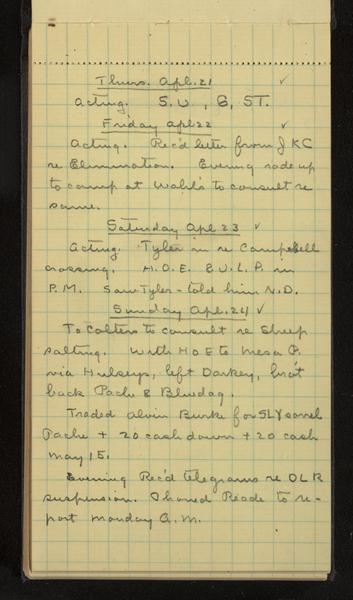 Thurs. Apl. 21 ✓
Acting. S.U., G, ST.
Friday Apl 22 ✓
Acting. Rec'd letter from J KC
re Elimination. Evening rode up
to camp at Wahl's to consult re
same.
Saturday Apl 23 ✓
Acting. Tyler in re Campbell
crossing. H.O.E. & U.L.P. in
P.M. Saw Tyler - told him N.D.
Sunday Apl. 24 ✓
To Colters to consult re Sheep
salting. With HOE to Mesa P.
via Hulseys, left Darkey, bro't
back Pache & Bluedog.
Traded Alvin Burke for SLY sorrel
Pache + 20 cash down + 20 cash
May 15.
Evening Rec'd telegrams re OLR
suspension. Phoned Reade to re-
port Monday A.M.